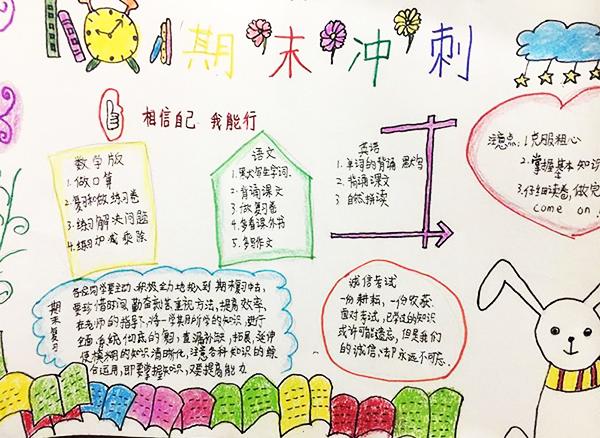 期末冲刺
相信自己 我能行
数学版
1.做口算
2.复习和做练习卷
3.练习解决问题
4.练习加减乘除
语文
1.默写生字词.
2.背诵课文
3.做复习卷
4.多看课外书
5.多写作文
英语
1.单词的背诵 默写
2.背诵课文
3.自然拼读
注意点:1.克服粗心
2.掌握基本知识
3.仔细读卷,做完
come on
期末复习
各位同学要主动、积极全力地投入到期末复习中去,
要珍惜时间,勤奋刻苦重视方法,提高效率,
在老师的指导下,将一学期所学的知识,进行
全面、系统、彻底的复习,查漏补缺,拓展、延伸
使模糊的知识清晰化,注意各种知识的综
合运用,即要掌握知识,又要提高能力
诚信考试
一份耕耘,一份收获
面对考试,已学过的知识
或许可能遗忘,但是我们
的诚信,却永远不可忘.